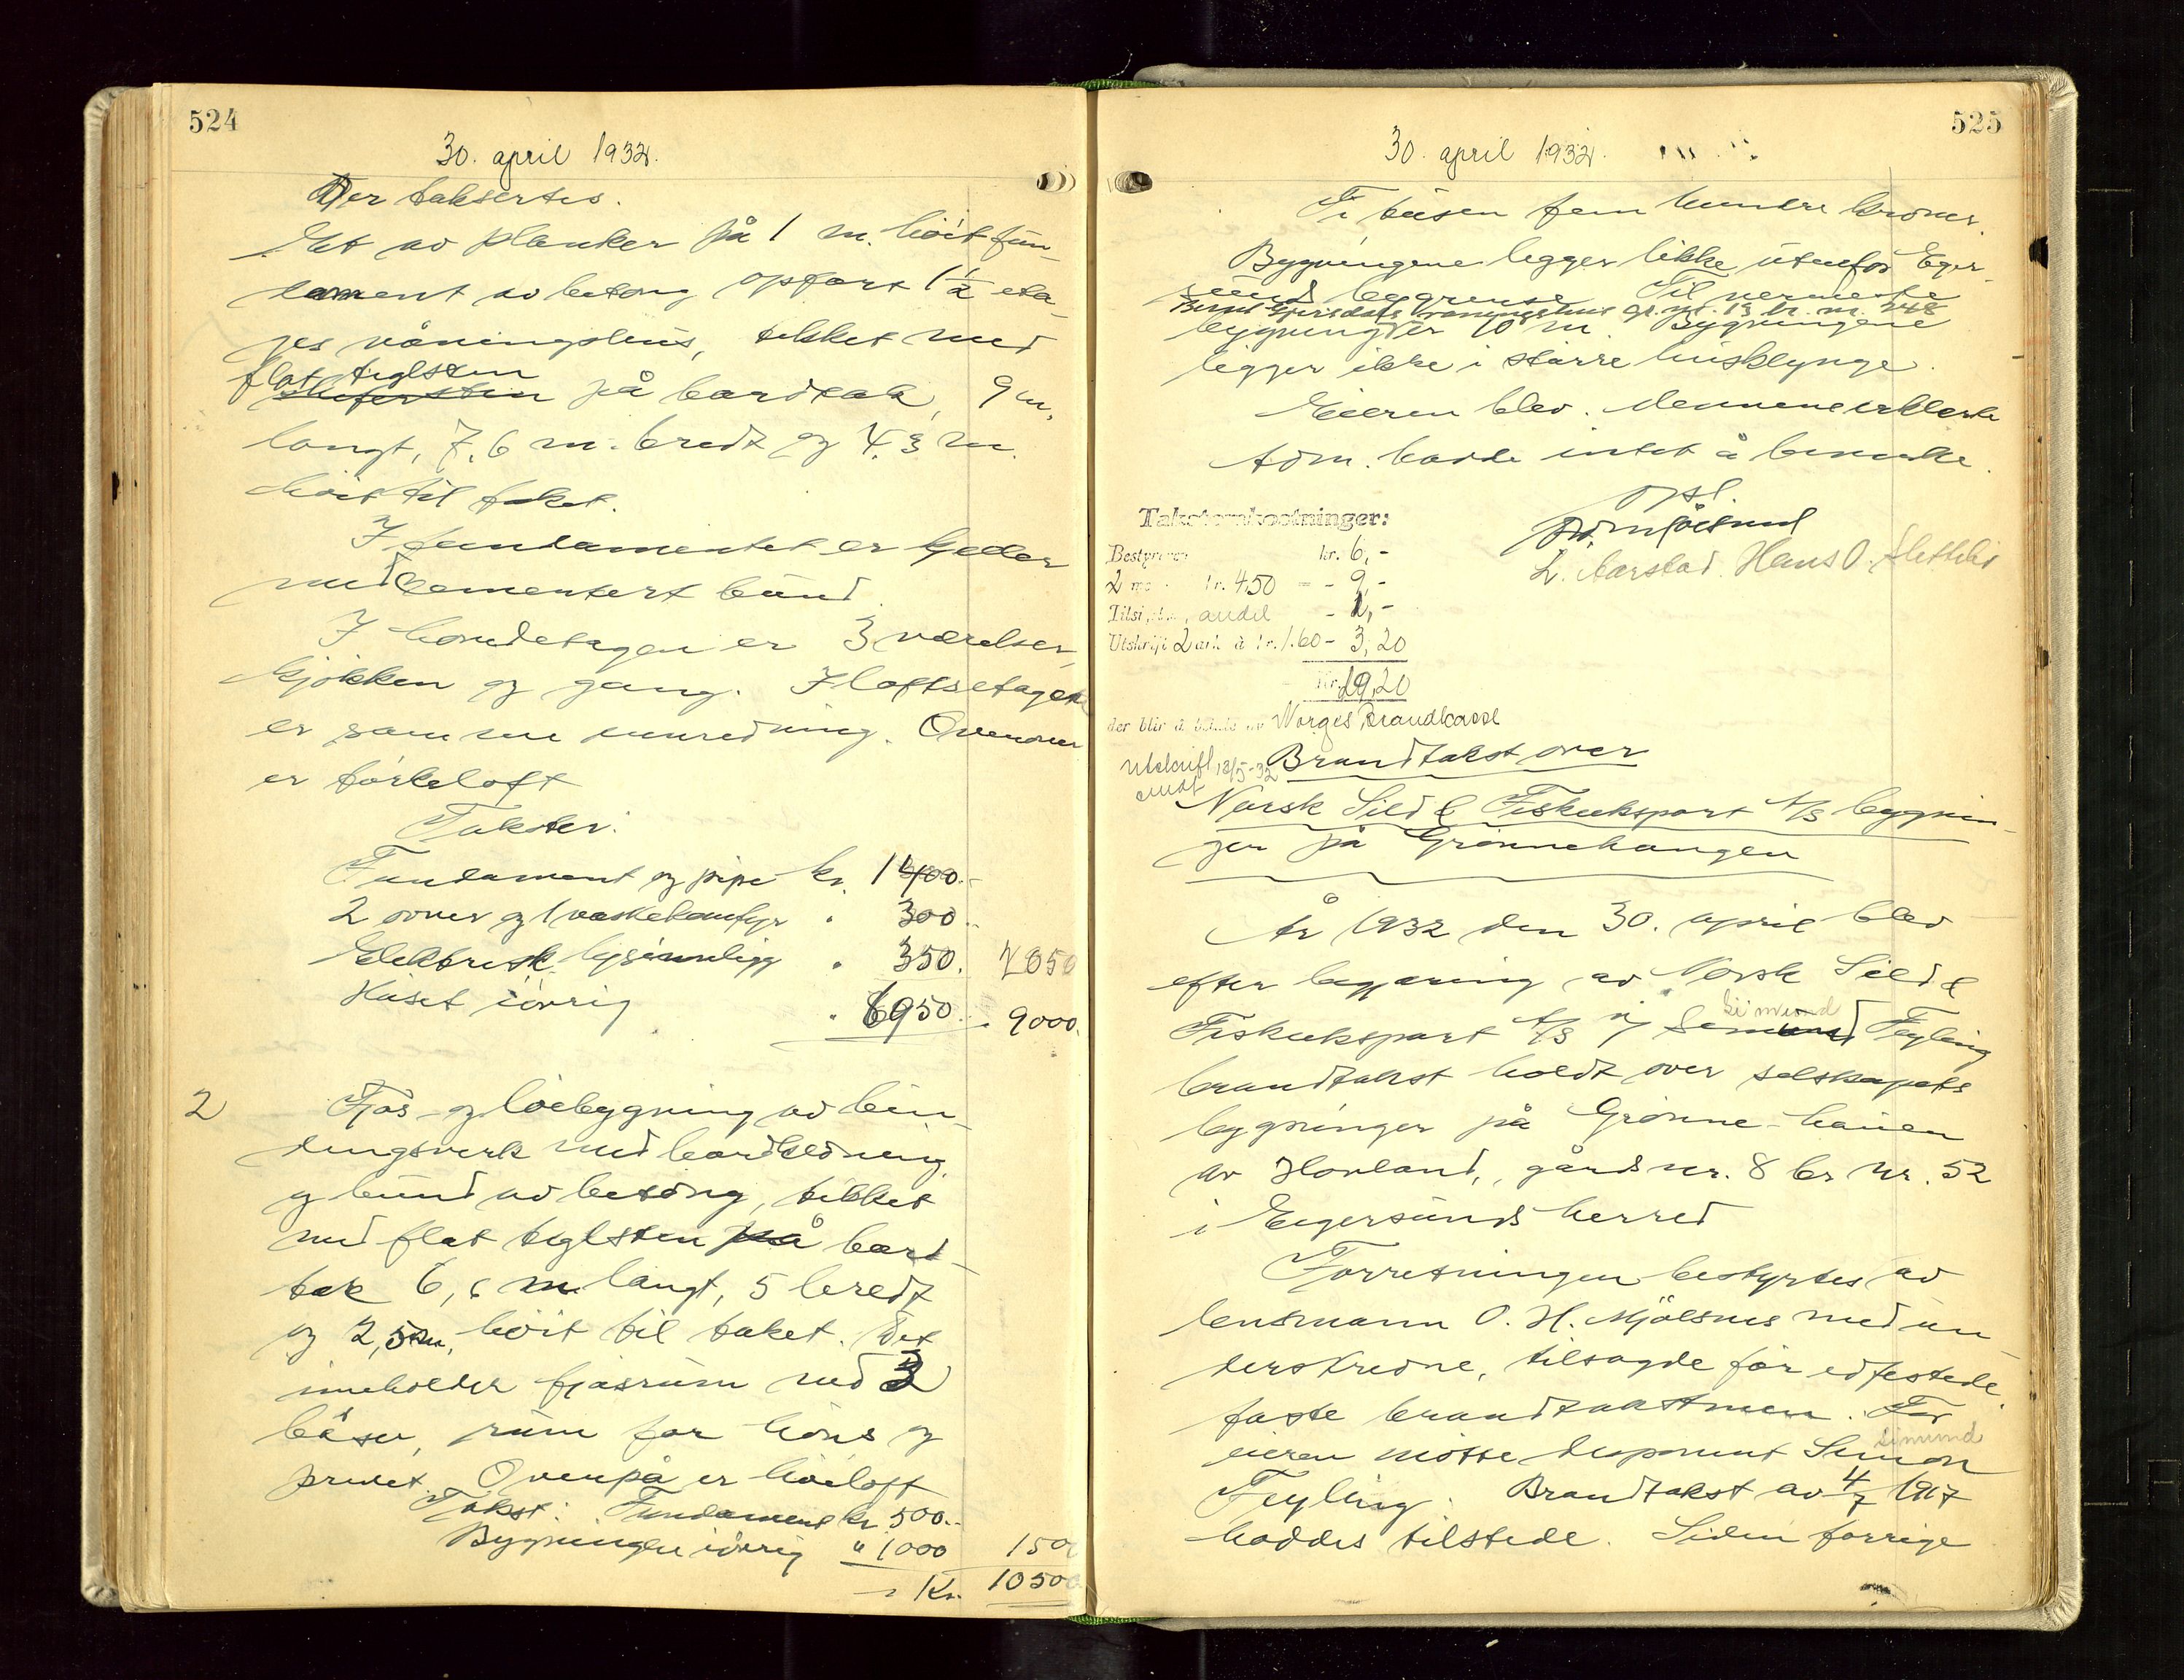 524
30. april 1932.
Der taksertes.
Et av planker på 1 m. höit fun-
dament av betong opført 1½ eta-
ges våningshus, tekket med
flat teglsten
skiferstein på bordtak, 9 m.
langt, 7,6 m. bredt og 4,3 m.
höit til taket.
I fundamentet er kjeller
med cementert bund.
I hovedetagen er 3 værelser,
kjökken og gang. I loftsetagen
er samme innredning. Ovenover
er törkeloft
Takster:
Fundament og pipe kr. 1400.-
2 ovner og 1 vaskekomfyr " 300.-
Elektrisk lysinnlegg " 350. 2050
Huset iövrig " 6950.- 9000.
2 Fjös- og löebygning av bin-
dingsverk med bordkledning
og bund av betong, tekket
med flat teglsten på bord-
tak 6,6 m langt, 5 bredt
og 2,5 m. höit til taket. Det
inneholder fjösrum med 3
båser, rum for höns og
privet. Ovenpå er höiloft
Takst: Fundament kr. 500.-
Bygningen iövrig " 1000 1500
Kr. 10500
525
30. april 1932.
Ti tusen fem hundre kroner.
Bygningene legger likke utenfor Eger-
sund bygrense. Til nermeste
våningshus gr. nr. 13 br. nr. 248
bygning er 10 m. Bygningene
ligger ikke i större husklynge.
Eieren blev. Mennene erklerte
som. hadde intet å bemerke.
Opl.
L. Aarstad. Hans O.
Takstomkostninger:
Bestyreren kr. 6,-
2 kr. 4,50 = - 9,-
Tilsi andel - 1,-
Utskrift 2 ark à kr. 1.60 - 3,20
Kr. 19,20
der blir å betale av Norges Brandkasse
Utskrift 12/5-32
sendt
Brandtakst over
Norsk Sild & Fiskeksport A/S bygnin-
ger på Grönnehaugen
År 1932 den 30. april blev
efter begjæring av Norsk Sild &
Fiskeksport A/S v/ Simund Feyling
brandtakst holdt over selskapets
bygninger på Grönne-hauen
av Hovland, gårds nr. 8 br nr. 52
i Eigersunds herred
Forretningen bestyrtes av
lensmann O. H. Mjölsnes med un-
derskredne, tilsagde för edfestede
faste brandtakstmen. For
simund
eieren mötte disponent Simon
Feyling. Brandtakst av 4/7 1917
haddes tilstede. Siden forrige